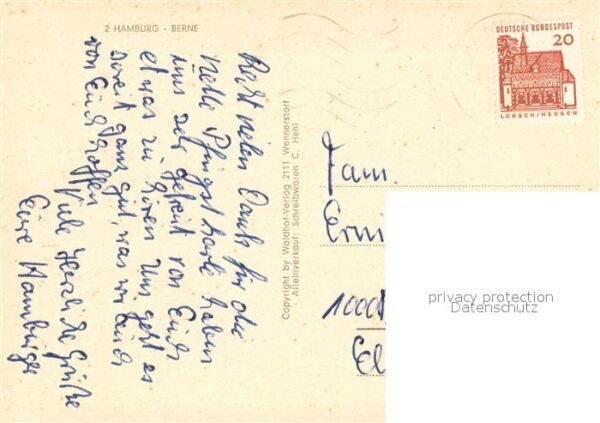 2 HAMBURG - BERNE
Recht vielen Dank für die
nette Pfingstkarte haben
uns sehr gefreut von Euch
etwas zu hören Uns geht es
soweit ganz gut was wir auch
von Euch hoffen
Viele Herzliche Grüße
Eure Hamburger
Copyright by Waldhof-Verlag 2111 Wennerstorf
Alleinverkauf: Schreibwaren C. Hehl
DEUTSCHE BUNDESPOST
20
LORSCH/HESSEN
Fam.
Erni
1000
El
privacy protection
Datenschutz